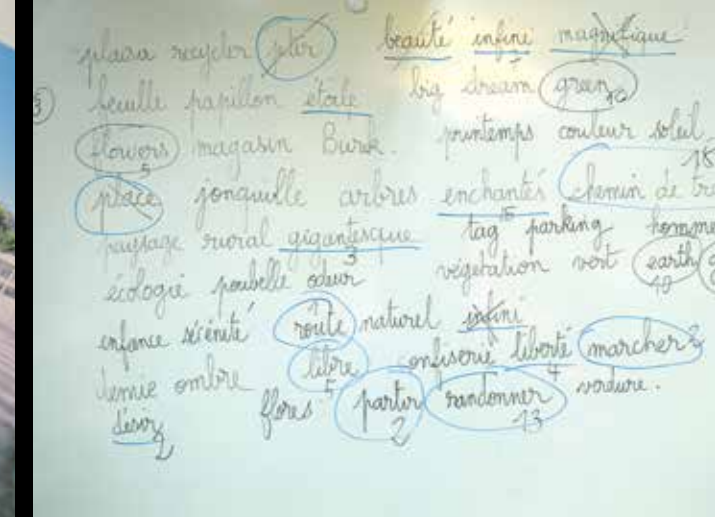 recycler jeter beauté infini magnifique
feuille papillon étoile big dream green 10
flowers magasin Burk. printemps couleur soleil
5 18
place jonquille arbres enchantés chemin de tra
15
paysage rural gigantesque tag parking homme
3
écologie poubelle odeur végétation vert earth
10
enfance sérénité route naturel infini
1
ombre libre confiserie liberté marcher 2
5 4
flores partir randonner verdure.
désir 2 2 13